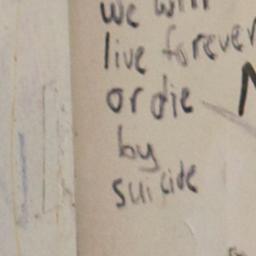 we will
live forever
or die
by
suicide